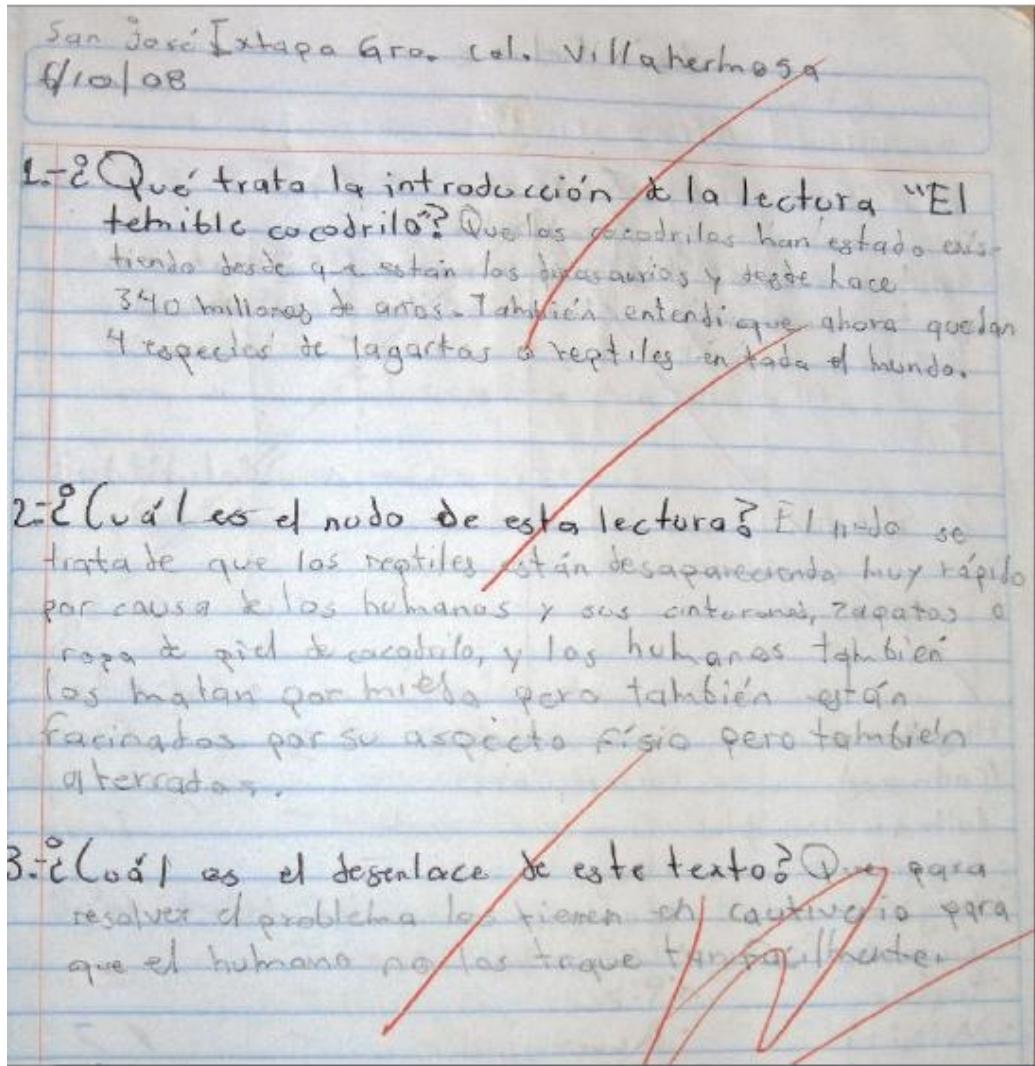 San José Ixtapa Gro. Col. Villahermosa
6/10/08
1.-¿Qué trata la introducción de la lectura "El
temible cocodrilo"? Que los cocodrilos han estado exis-
tiendo desde que están los dinosaurios y desde hace
340 millones de años. También entendí que ahora quedan
4 especies de lagartos o reptiles en todo el mundo.
2.-¿Cuál es el nudo de esta lectura? El nudo se
trata de que los reptiles están desapareciendo muy rápido
por causa de los humanos y sus cinturones, zapatos o
ropa de piel de cocodrilo, y los humanos también
los matan por miedo pero también están
facinados por su aspecto físio pero también
aterrados.
3.-¿Cuál es el desenlace de este texto? Que para
resolver el problema los tienen en cautiverio para
que el humano no los toque tan facilmente.